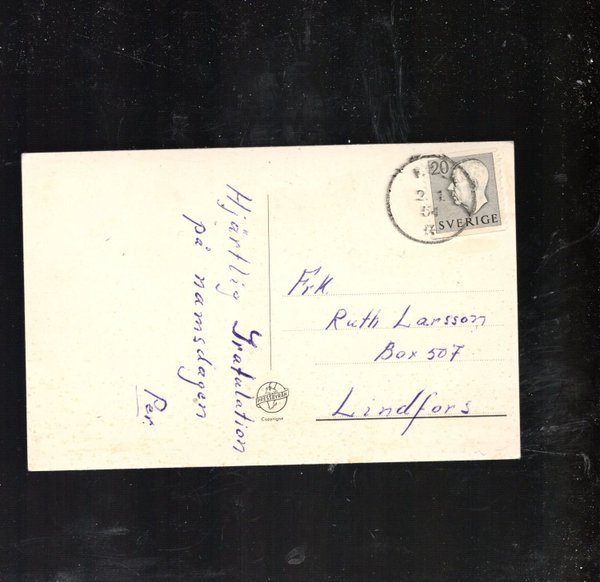 Hjärtlig Gratulation
på namsdagen
Per.
20
SVERIGE
2. 1.
54
Frk
Ruth Larsson
Box 507
Lindfors
PRESSBYRÅN
Copyright